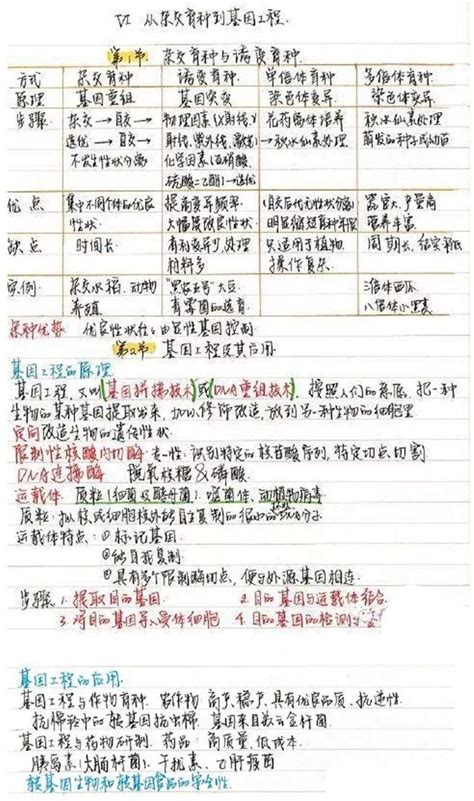 VI 从杂交育种到基因工程.
第1节 杂交育种与诱变育种.
方式 杂交育种 诱变育种 单倍体育种 多倍体育种
原理 基因重组 基因突变 染色体变异 染色体变异.
步骤 杂交→自交→ 物理因素(X射线,γ 花药离体培养 秋水仙素处理
选优→自交→ 射线,紫外线,激光) →秋水仙素处理 萌发的种子或幼苗
不发生性状分离 化学因素(亚硝酸,
硫酸二乙酯)→选优
优点 集中不同个体的优良 提高变异频率 (自交后代无性状分离) 器官大,产量高
性状. 大幅度改良性状. 明显缩短育种年限 营养丰富.
缺点 时间长. 有利变异少,处理 只适用于植物 周期长,结实率低
材料多 操作复杂.
实例. 杂交水稻.动物 "黑农五号"大豆. 三倍体西瓜
养殖 青霉菌的选育. 八倍体小黑麦
杂种优势 优良性状往往由显性基因控制
第2节 基因工程及其应用
基因工程的原理
基因工程,又叫(基因拼接技术)或(DNA重组技术).按照人们的意愿,把一种
生物的某种基因提取出来,加以修饰改造,放到另一种生物的细胞里
定向改造生物的遗传性状.
限制性核酸内切酶:专一性:识别特定的核苷酸序列,特定切点切割
DNA连接酶 脱氧核糖&磷酸.
运载体 质粒(细菌及酵母菌).噬菌体.动植物病毒
质粒:拟核或细胞核外能自主复制的很小的DNA分子
运载体特点:①标记基因.
②能自我复制.
③具有多个限制酶切点,便与外源基因相连.
步骤1.提取目的基因. 2.目的基因与运载体结合.
3.将目的基因导入受体细胞 4.目的基因的检测与
基因工程的应用.
基因工程与作物育种.农作物:高产,稳产,具有优良品质、抗逆性
抗棉铃虫的转基因抗虫棉.基因来自苏云金杆菌.
基因工程与药物研制.药品:高质量,低成本.
胰岛素(大肠杆菌).干扰素、乙肝疫苗
转基因生物和转基因食品的安全性.